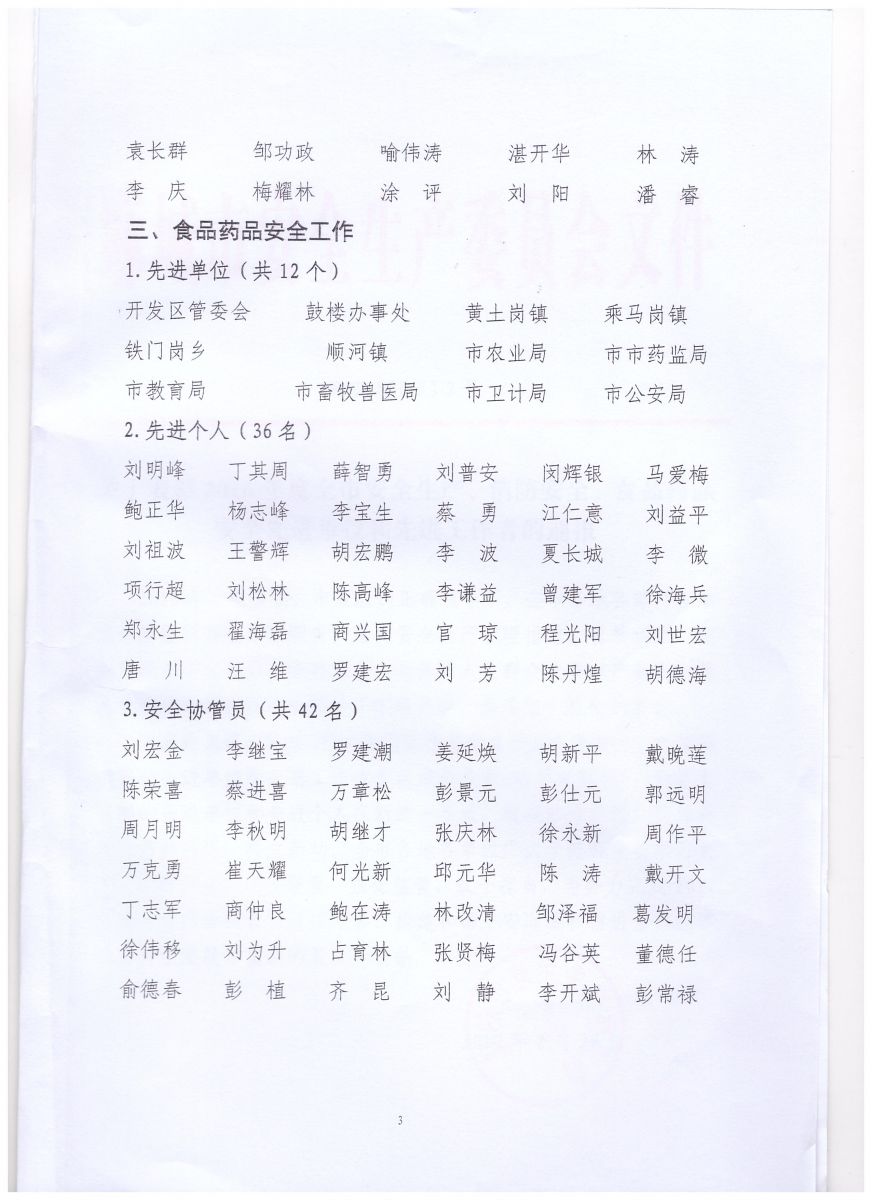 袁长群 邹功政 喻伟涛 湛开华 林 涛
李 庆 梅耀林 涂 评 刘 阳 潘 睿
三、食品药品安全工作
1.先进单位（共12个）
开发区管委会 鼓楼办事处 黄土岗镇 乘马岗镇
铁门岗乡 顺河镇 市农业局 市市药监局
市教育局 市畜牧兽医局 市卫计局 市公安局
2.先进个人（36名）
刘明峰 丁其周 薛智勇 刘普安 闵辉银 马爱梅
鲍正华 杨志峰 李宝生 蔡 勇 江仁意 刘益平
刘祖波 王警辉 胡宏鹏 李 波 夏长城 李 微
项行超 刘松林 陈高峰 李谦益 曾建军 徐海兵
郑永生 翟海磊 商兴国 官 琼 程光阳 刘世宏
唐 川 汪 维 罗建宏 刘 芳 陈丹煌 胡德海
3.安全协管员（共42名）
刘宏金 李继宝 罗建潮 姜延焕 胡新平 戴晚莲
陈荣喜 蔡进喜 万章松 彭景元 彭仕元 郭远明
周月明 李秋明 胡继才 张庆林 徐永新 周作平
万克勇 崔天耀 何光新 邱元华 陈 涛 戴开文
丁志军 商仲良 鲍在涛 林改清 邹泽福 葛发明
徐伟移 刘为升 占育林 张贤梅 冯谷英 董德任
俞德春 彭 植 齐 昆 刘 静 李开斌 彭常禄
3